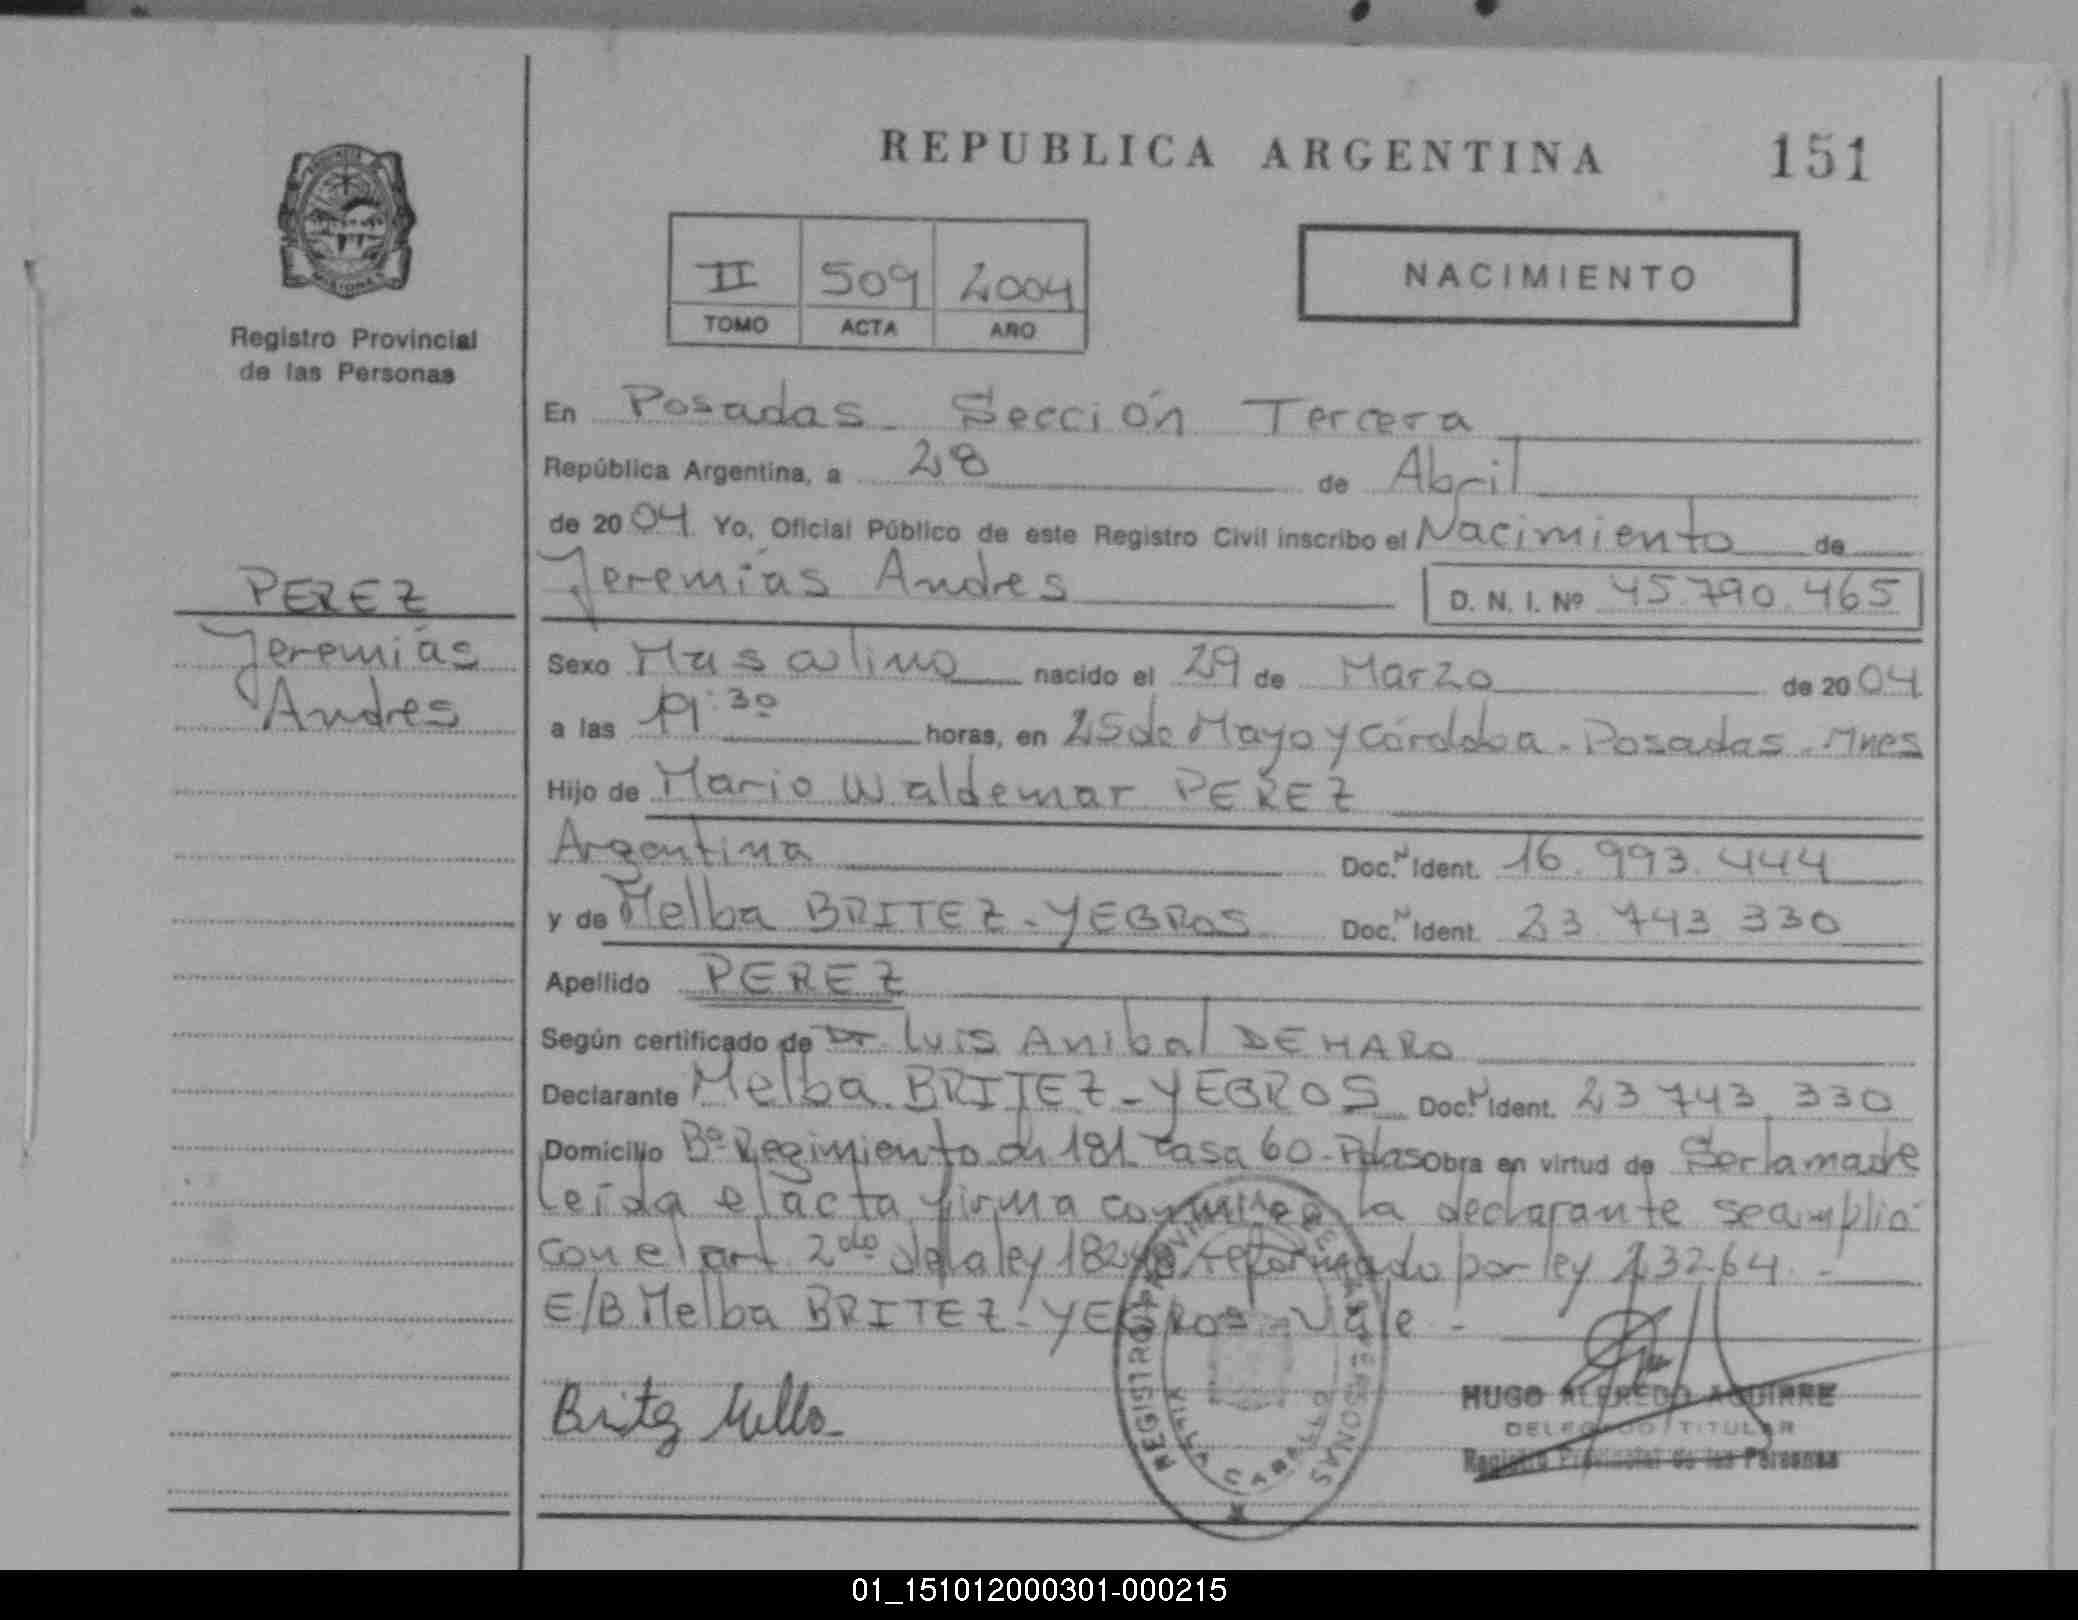 REPUBLICA ARGENTINA 151
II 509 2004
TOMO ACTA AÑO
NACIMIENTO
Registro Provincial
de las Personas
PEREZ
Jeremías
Andres
En Posadas - Sección Tercera
República Argentina, a 28 de Abril
de 2004 Yo, Oficial Público de este Registro Civil inscribo el Nacimiento de
Jeremías Andres D. N. I. Nº 45.790.465
Sexo Masculino nacido el 29 de Marzo de 2004
a las :30 horas, en 25 de Mayo y Córdoba - Posadas - Mnes
Hijo de Mario Waldemar PEREZ
Argentina Doc. N Ident. 16.993.444
y de Melba BRITEZ - YEGROS Doc. N Ident. 23 743 330
Apellido PEREZ
Según certificado de Dr. Luis Anibal DE HARO
Declarante Melba BRITEZ - YEGROS Doc. N Ident. 23 743 330
Domicilio Bº Regimiento 181 Casa 60 - Pdas Obra en virtud de Ser la madre
Leída el acta firma conmigo la declarante se amplió
con el art 2do de la ley 18248 reformado por ley 23264.-
E/B Melba BRITEZ - YEGROS - Vale -
Britez Melba
REGISTRO PROVINCIAL DE LAS PERSONAS
VILLA CABELLO
HUGO ALFREDO AGUIRRE
DELEGADO TITULAR
Registro Provincial de las Personas
01_151012000301-000215